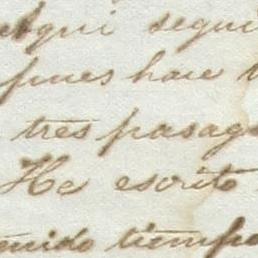 aqui segui
pues hace
tres pasage
He escrito
enido tiempo